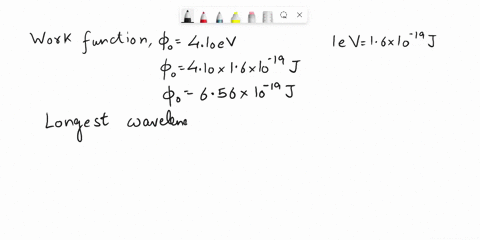 Work function, ϕ₀ = 4.10eV
1eV = 1.6×10⁻¹⁹ J
ϕ₀ = 4.10 × 1.6 × 10⁻¹⁹ J
ϕ₀ = 6.56 × 10⁻¹⁹ J
Longest wavelene